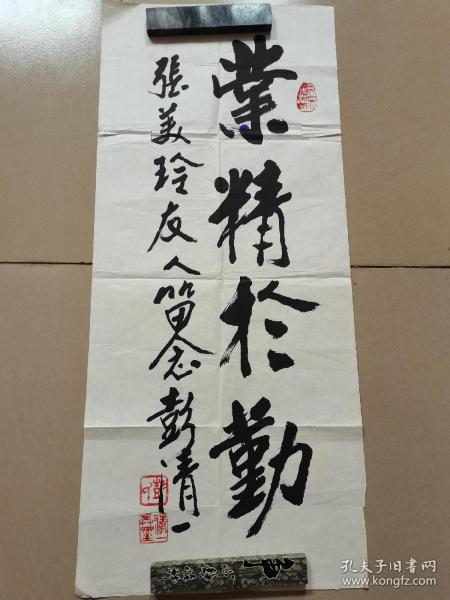 業精於勤
張美玲友人留念彭清一
孔夫子旧书网
www.kongfz.com